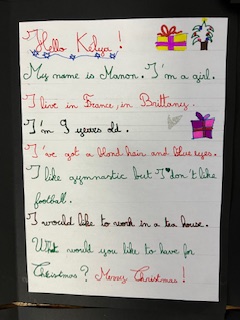 Hello Kelya !
My name is Manon. I'm a girl.
I live in France, in Brittany.
I'm 9 years old.
I've got a blond hair and blue eyes.
I like gymnastic but I don't like
football.
I would like to work in a tea house.
What would you like to have for
Christmas ? Merry Christmas !